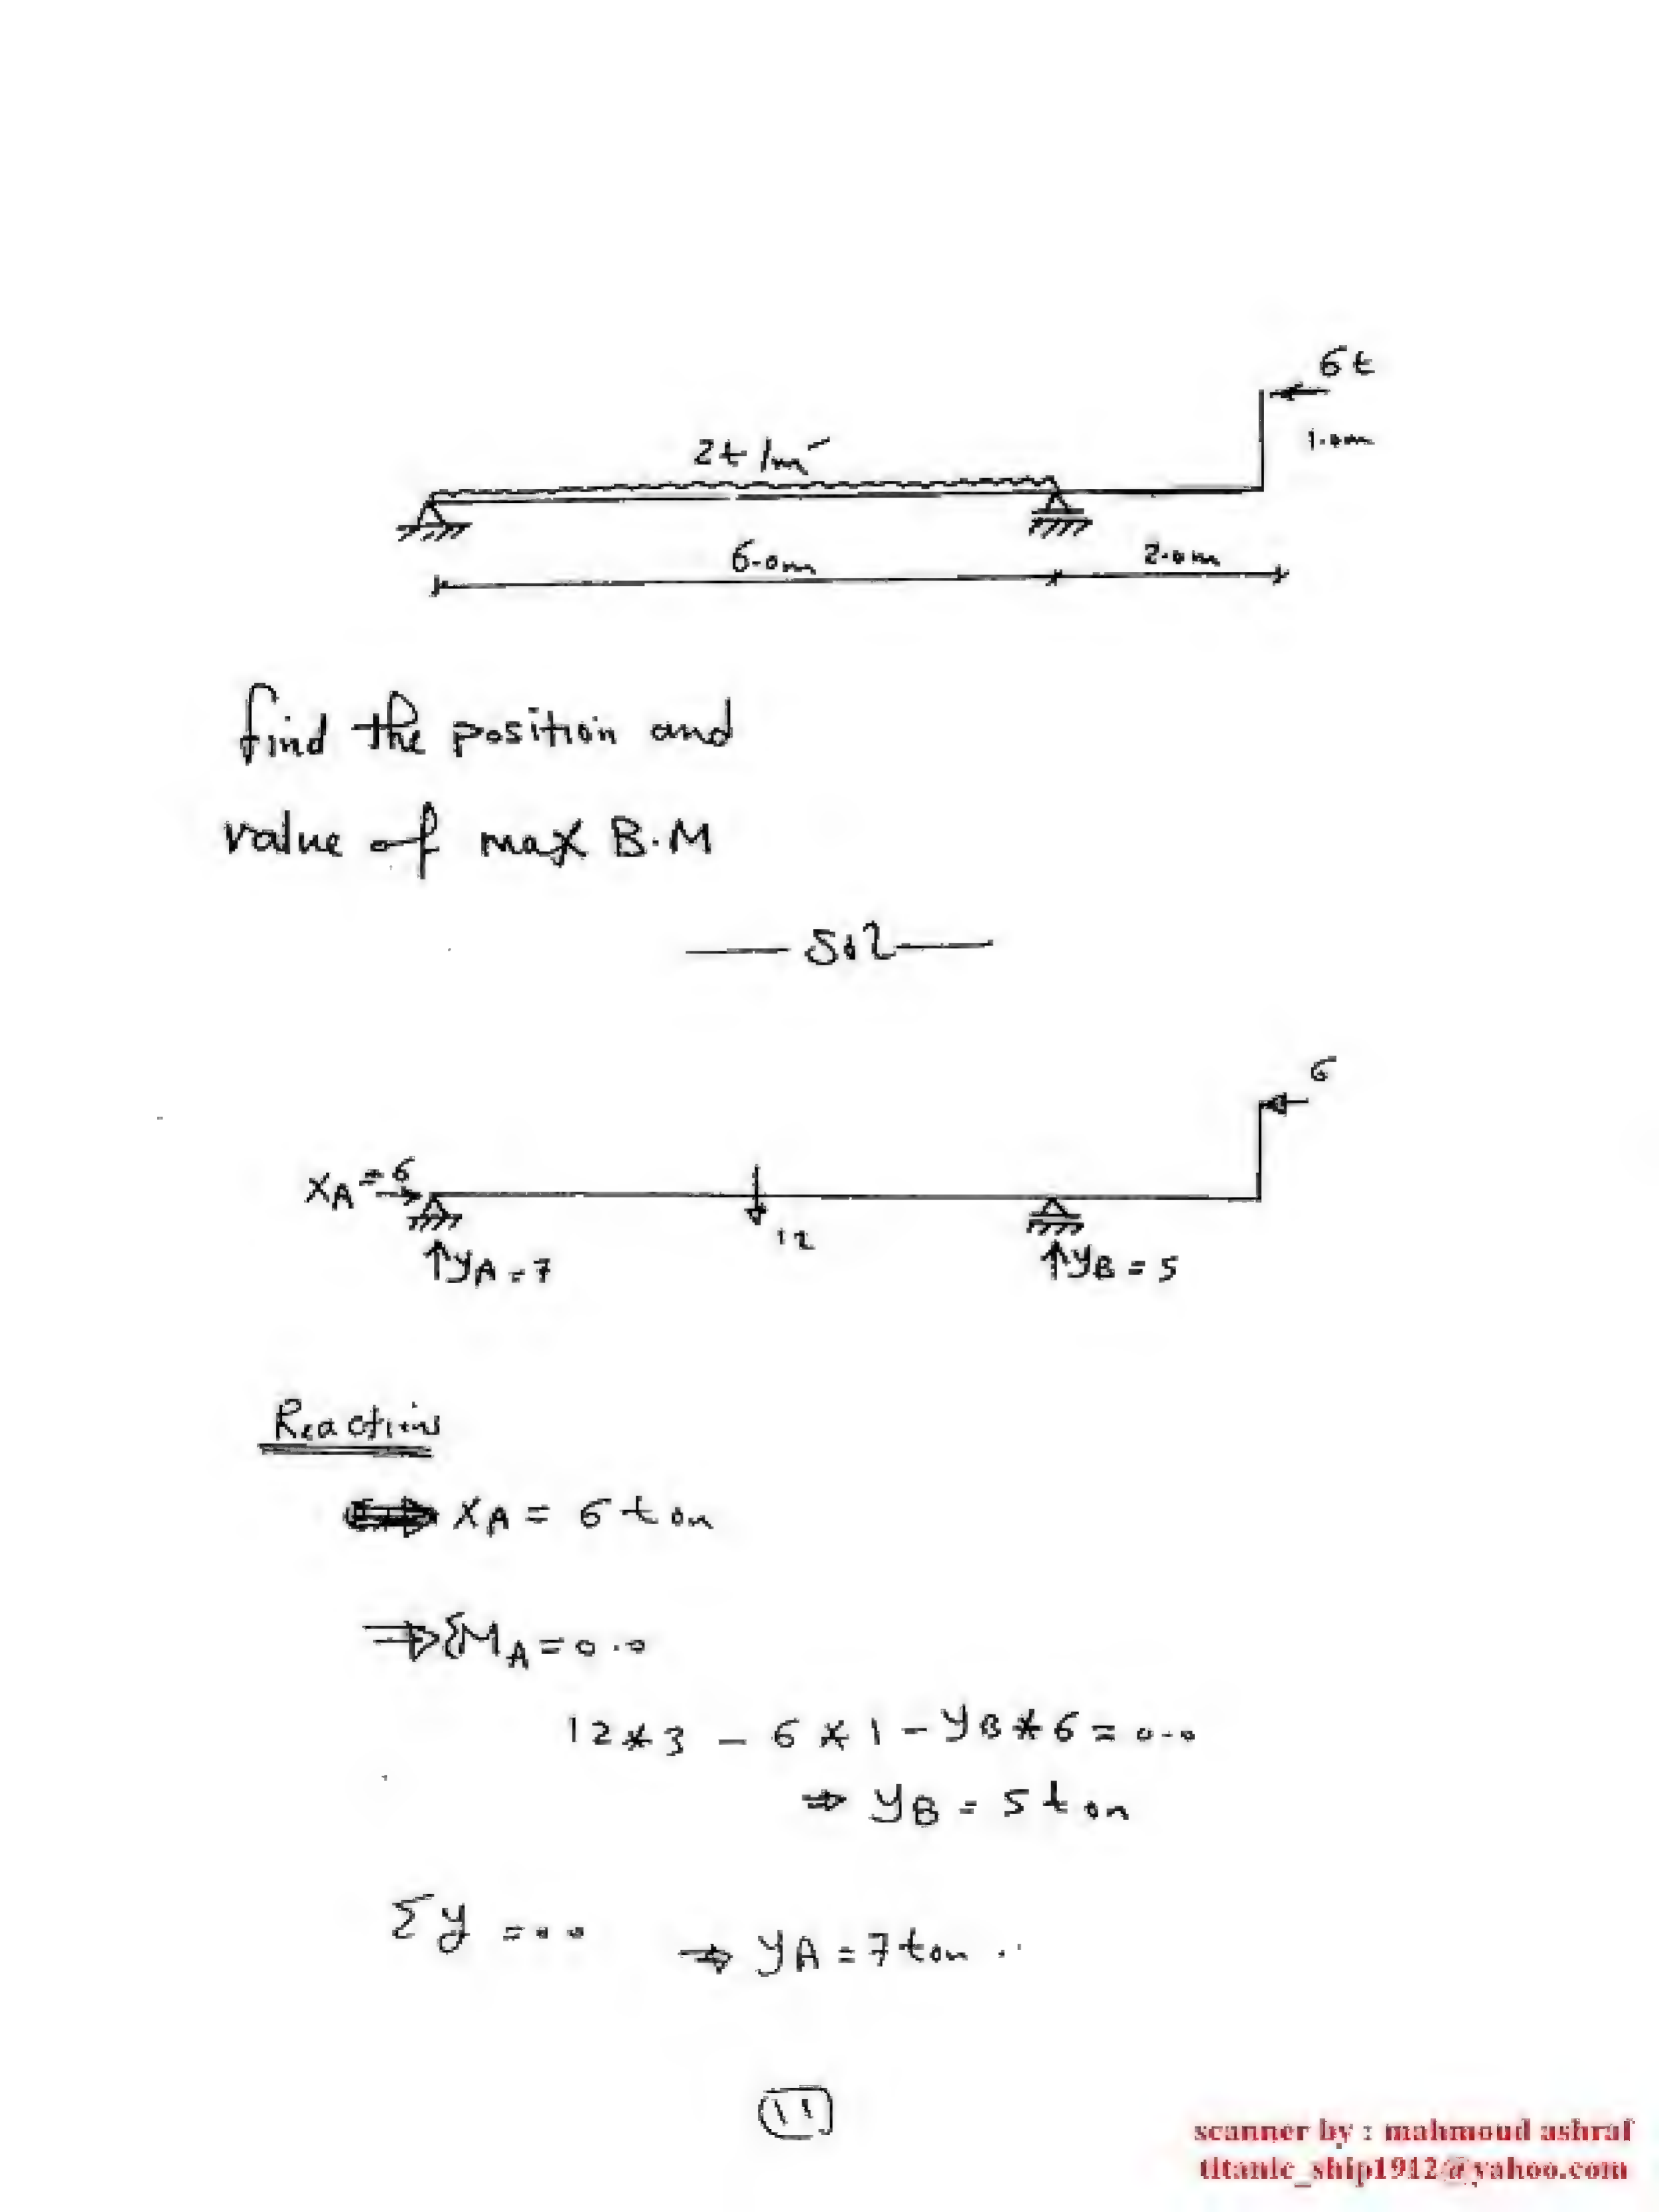 6t
1.0m
2t/m'
6.0m
2.0m
find the position and
value of max B.M
Sol
6
XA = 6
12
yA = 7
yB = 5
Reactions
⇒ XA = 6 ton
⇒ ΣMA = 0.0
12*3 - 6*1 - yB*6 = 0.0
⇒ yB = 5 ton
Σy = 0.0 ⇒ yA = 7 ton
11
scanner by : mahmoud ashraf
titanic_ship1912@yahoo.com